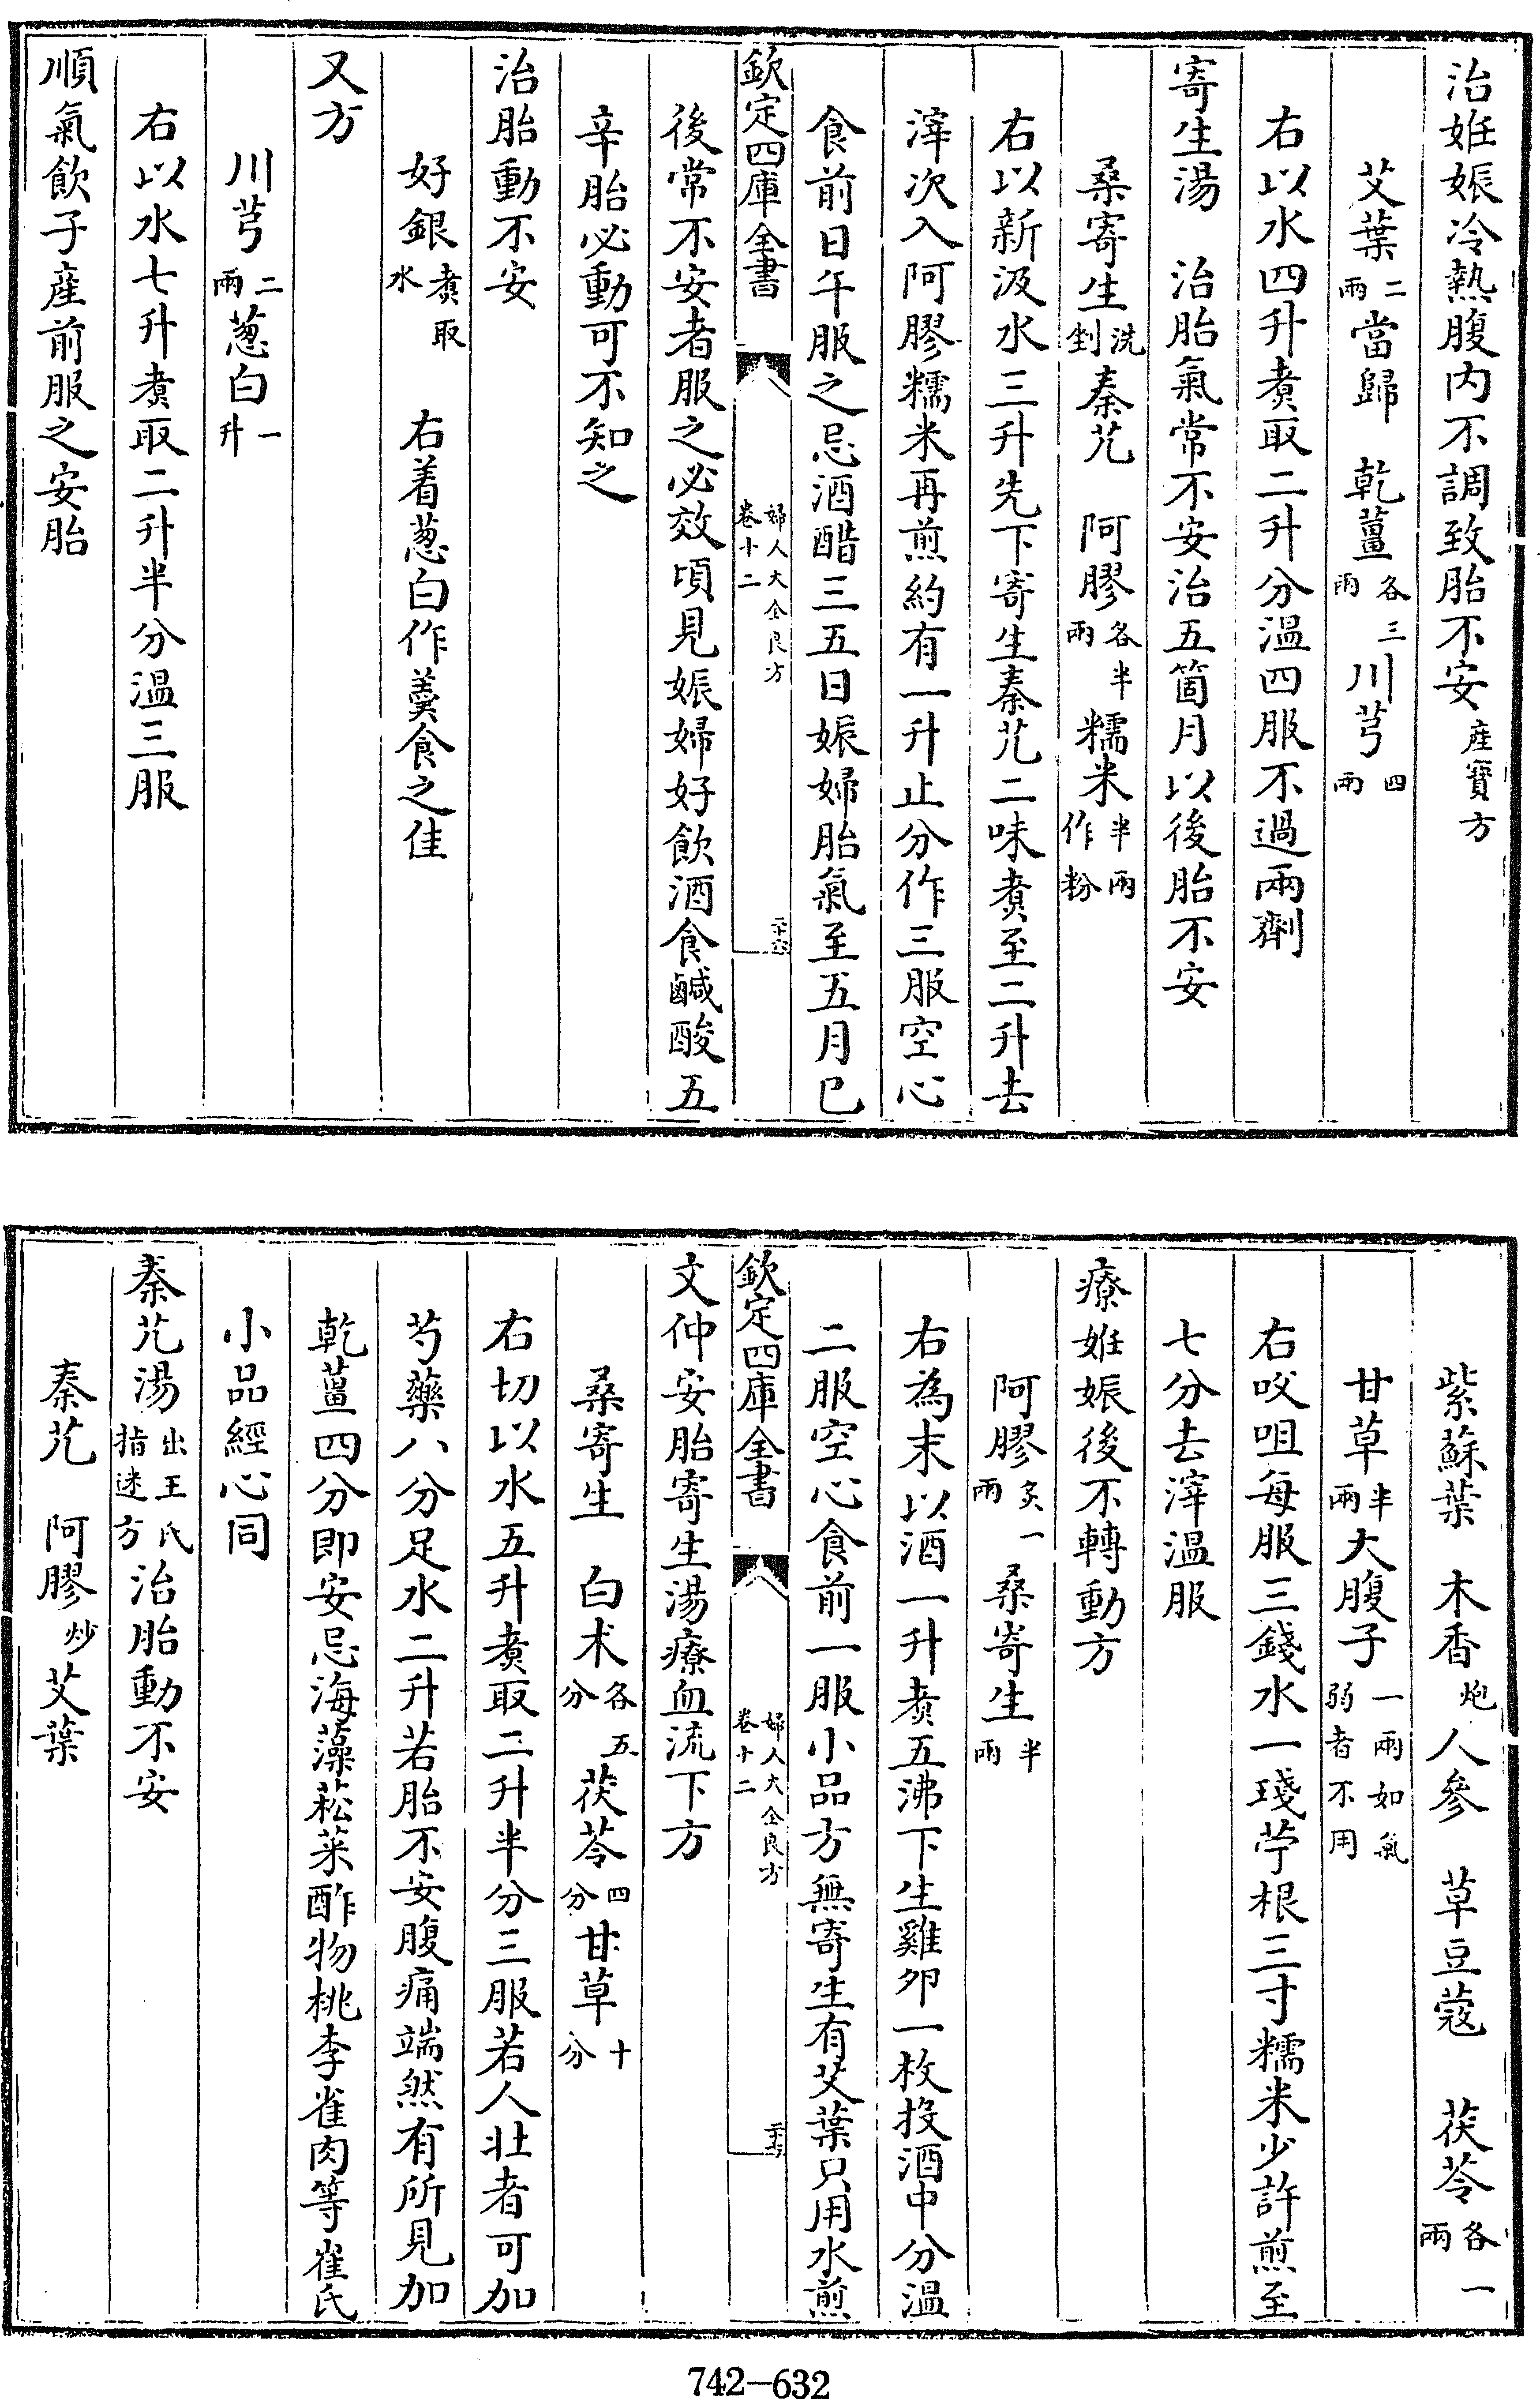 治姙娠冷熱腹内不調致胎不安産寳方
艾葉二兩當歸　乾薑各三兩川芎四兩
右以水四升煑取二升分温四服不過兩劑
寄生湯　治胎氣常不安治五箇月以後胎不安
桑寄生洗剉秦艽　阿膠各半兩糯米半兩作粉
右以新汲水三升先下寄生秦艽二味煑至二升去
滓次入阿膠糯米再煎約有一升止分作三服空心
食前日午服之忌酒醋三五日娠婦胎氣至五月已
欽定四庫全書　婦人大全良方卷十二　二十六
後常不安者服之必效頃見娠婦好飲酒食鹹酸五
辛胎必動可不知之
治胎動不安
好銀煑取水　右着葱白作羮食之佳
又方
川芎二兩葱白一升
右以水七升煑取二升半分温三服
順氣飲子産前服之安胎
紫蘇葉　木香炮人參　草豆蔻　茯苓各一兩
甘草半兩大腹子一兩如氣弱者不用
右㕮咀每服三錢水一琖苧根三寸糯米少許煎至
七分去滓温服
療姙娠後不轉動方
阿膠炙一兩桑寄生半兩
右為末以酒一升煑五沸下生雞卵一枚投酒中分温
二服空心食前一服小品方無寄生有艾葉只用水煎
欽定四庫全書　婦人大全良方卷十二　二十七
文仲安胎寄生湯療血流下方
桑寄生　白术各五分茯苓四分甘草十分
右切以水五升煑取二升半分三服若人壯者可加
芍藥八分足水二升若胎不安腹痛端然有所見加
乾薑四分即安忌海藻菘菜酢物桃李雀肉等崔氏
小品經心同
秦艽湯出王氏指迷方治胎動不安
秦艽　阿膠炒艾葉
742-632